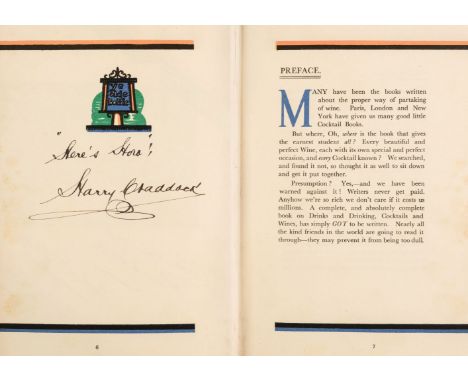 "Here's How"!
Harry Craddock
6
PREFACE.
MANY have been the books written
about the proper way of partaking
of wine. Paris, London and New
York have given us many good little
Cocktail Books.
But where, Oh, where is the book that gives
the earnest student all? Every beautiful and
perfect Wine, each with its own special and perfect
occasion, and every Cocktail known? We searched,
and found it not, so thought it as well to sit down
and get it put together.
Presumption? Yes,—and we have been
warned against it! Writers never get paid.
Anyhow we're so rich we don't care if it costs us
millions. A complete, and absolutely complete
book on Drinks and Drinking, Cocktails and
Wines, has simply GOT to be written. Nearly all
the kind friends in the world are going to read it
through—they may prevent it from being too dull.
7